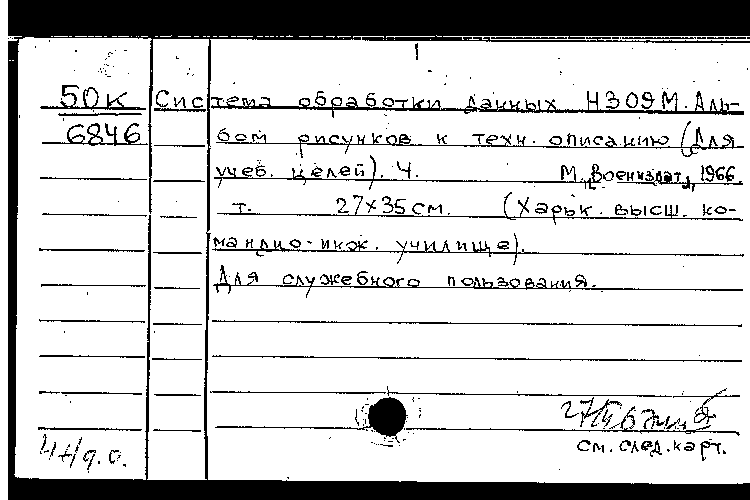 50к
6846
Система обработки данных Ч309М. Аль-
бом рисунков к техн. описанию (Для
учеб. целей). Ч. М., Воениздат, 1966.
т. 27×35 см. (Харьк. высш. ко-
мандно-инж. училище).
Для служебного пользования.
см. след. карт.